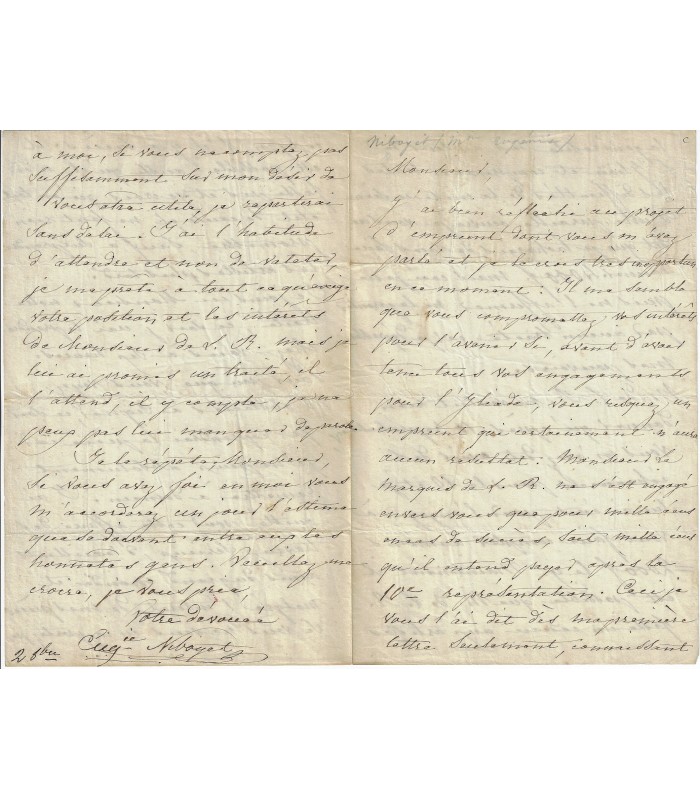 Niboyet (Me Eugénie)
Monsieur,
J'ai bien réfléchi au projet
d'emprunt dont vous m'avez
parlé et je le crois très
en ce moment. Il me semble
que vous compromettez vos intérêts
pour l'avenir si, avant d'avoir
tenu tous vos engagements
pour l', vous risquez un
emprunt qui certainement n'aura
aucun résultat. Monsieur le
marquis de L. R. ne s'est engagé
envers vous que pour mille écus
en cas de succès, soit mille écus
qu'il entend payer après la
10e représentation. Ceci je
vous l'ai dit dès ma première
lettre seulement, connaissent
à moi, si vous ne comptez pas
suffisamment sur mon désir de
vous être utile, je repartirai
sans délai. J'ai l'habitude
d'attendre et non de
je me prête à tout ce qu'exige
votre position et les intérêts
de Monsieur de L. R. mais je
lui ai promis un traité, il
l'attend, il y compte, je ne
peux pas lui manquer de parole.
Je le répète, Monsieur,
si vous avez foi en moi vous
m'accorderez un jour l'estime
que se doivent entre eux les
honnêtes gens. Veuillez me
croire, je vous prie,
Votre dévouée
Eugie Niboyet
2 8bre